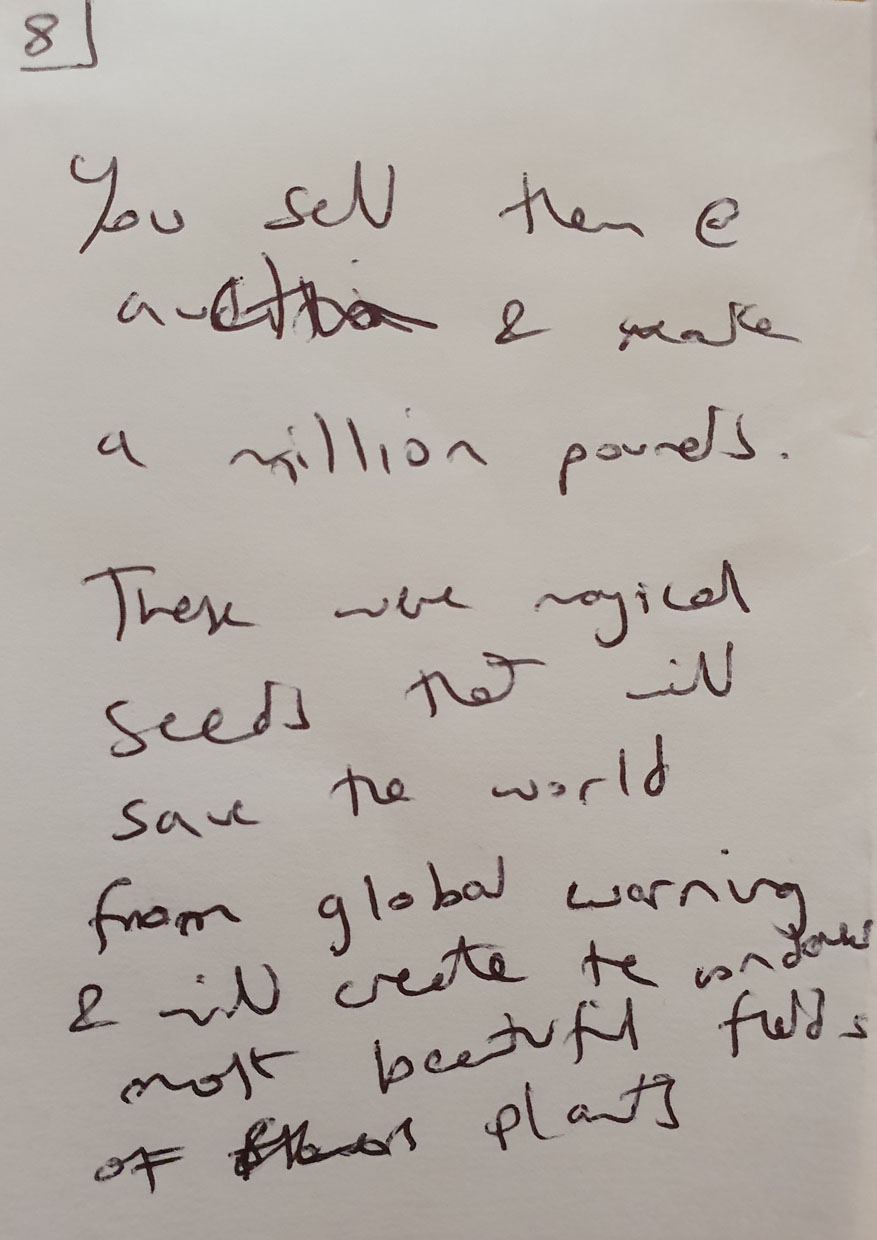 8
You sell them @
auction & make
a million pounds.
These were magical
seeds that will
save the world
from global warming
& will create the wondrous
most beautiful fields
of plants